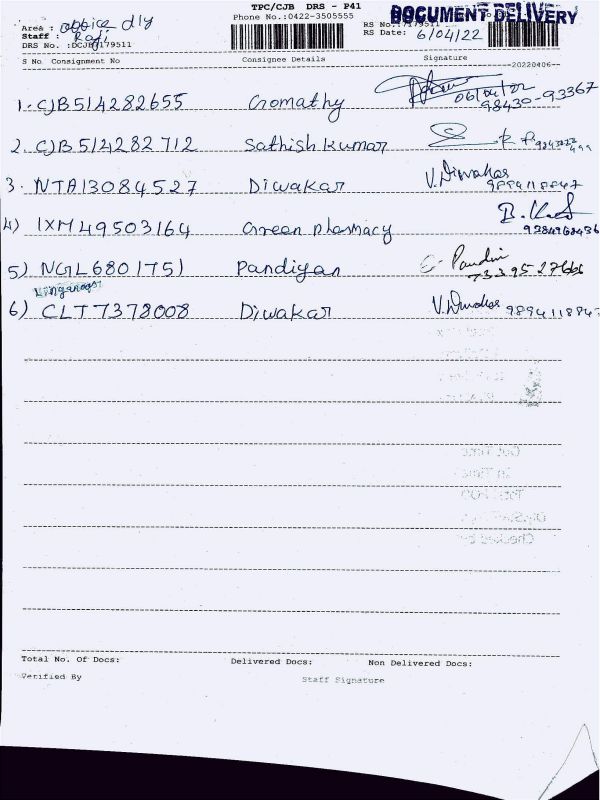 TPC/CJB DRS - P41
DOCUMENT DELIVERY
Area : office dly
Phone No.:0422-3505555
RS No.
Staff : Raji
RS Date: 6/04/22
DRS No. :DCJB/179511
S No Consignment No Consignee Details Signature
20220406
1. CJB514282655 Gomathy 06/04/22
98430-93367
2. CJB514282712 Sathish kumar
3. NTA13084527 Diwakar V. Diwakar
9894118847
4) IXM49503164 Green pharmacy
5) NGL6801751 Pandiyan
6) CLT7378008 Diwakar V. Diwakar 989411884
Out Time
In Time
Checked by
Total No. Of Docs: Delivered Docs: Non Delivered Docs:
Verified By Staff Signature